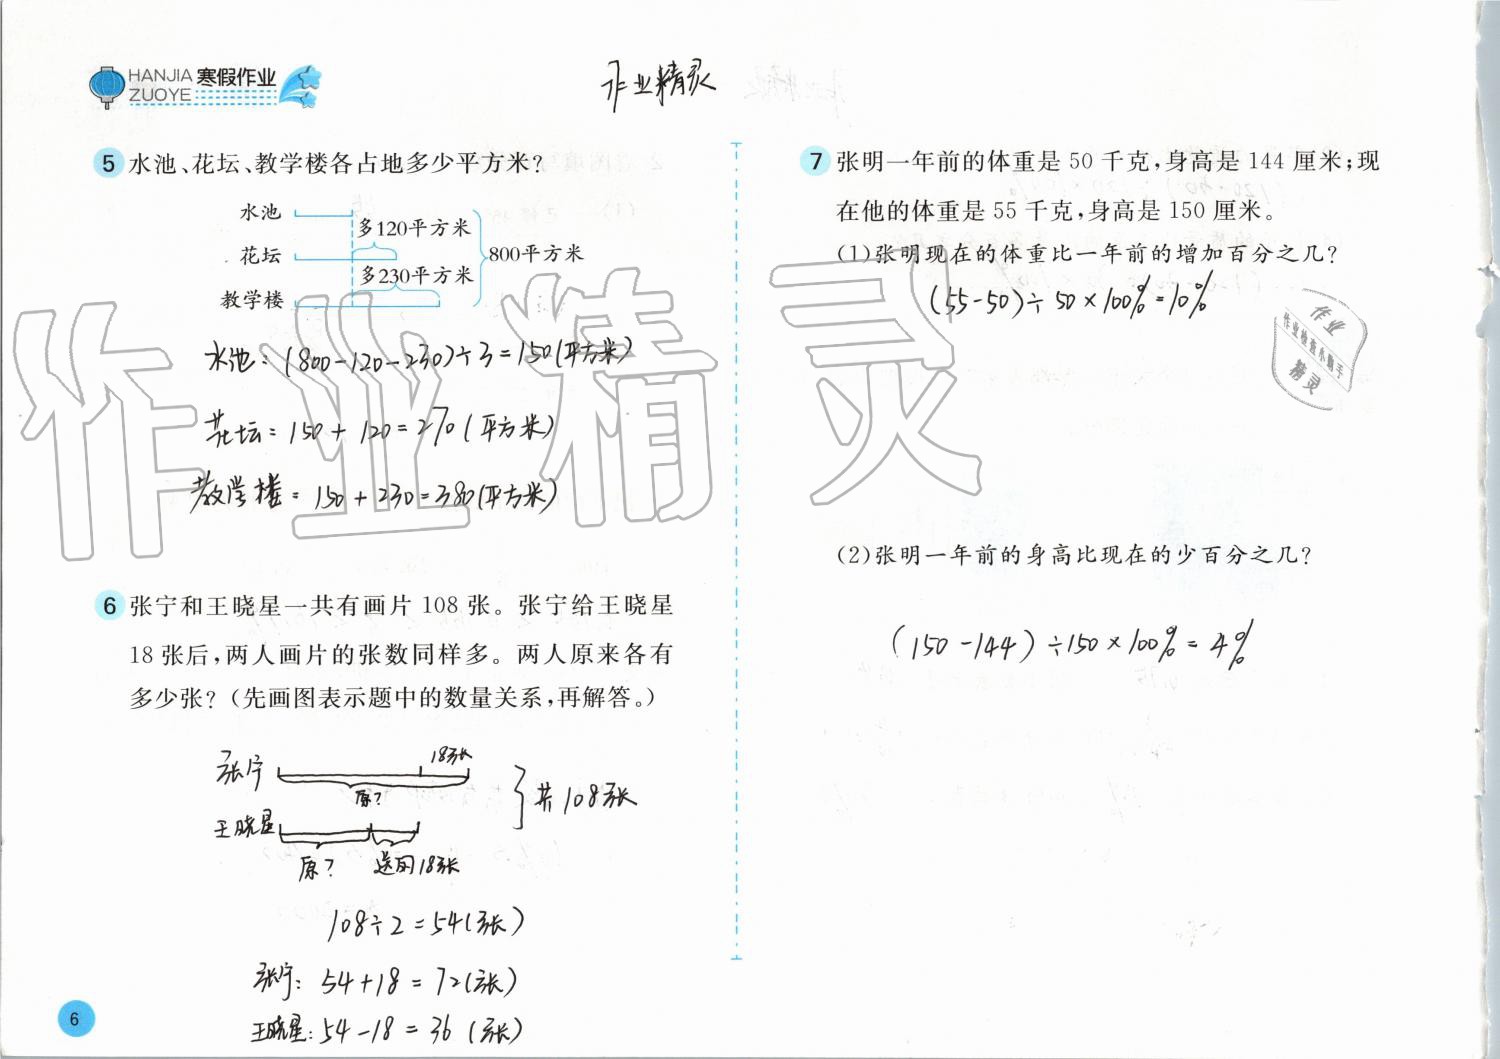 HANJIA 寒假作业
ZUOYE
作业精灵
5 水池、花坛、教学楼各占地多少平方米?
水池
多120平方米
花坛
800平方米
多230平方米
教学楼
水池：(800-120-230)÷3=150(平方米)
花坛：150+120=270(平方米)
教学楼：150+230=380(平方米)
6 张宁和王晓星一共有画片 108 张。张宁给王晓星
18 张后,两人画片的张数同样多。两人原来各有
多少张?(先画图表示题中的数量关系,再解答。)
张宁
18张
原?
共108张
王晓星
原?
送的18张
108÷2=54(张)
张宁：54+18=72(张)
王晓星：54-18=36(张)
6
7 张明一年前的体重是 50 千克,身高是 144 厘米;现
在他的体重是 55 千克,身高是 150 厘米。
(1)张明现在的体重比一年前的增加百分之几?
(55-50)÷50×100%=10%
作业
作业检查小助手
精灵
(2)张明一年前的身高比现在的少百分之几?
(150-144)÷150×100%=4%
作业精灵